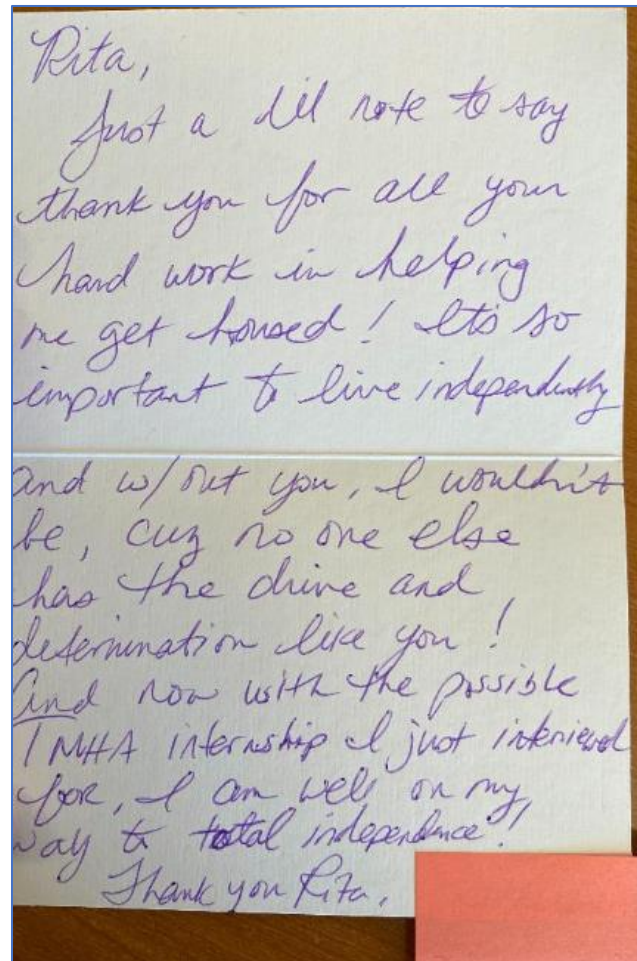 Rita,
Just a lil note to say
thank you for all your
hard work in helping
me get housed! It's so
important to live independently
and w/out you, I wouldn't
be, cuz no one else
has the drive and
determination like you!
And now with the possible
TMHA internship I just interviewed
for, I am well on my
way to total independence!
Thank you Rita,